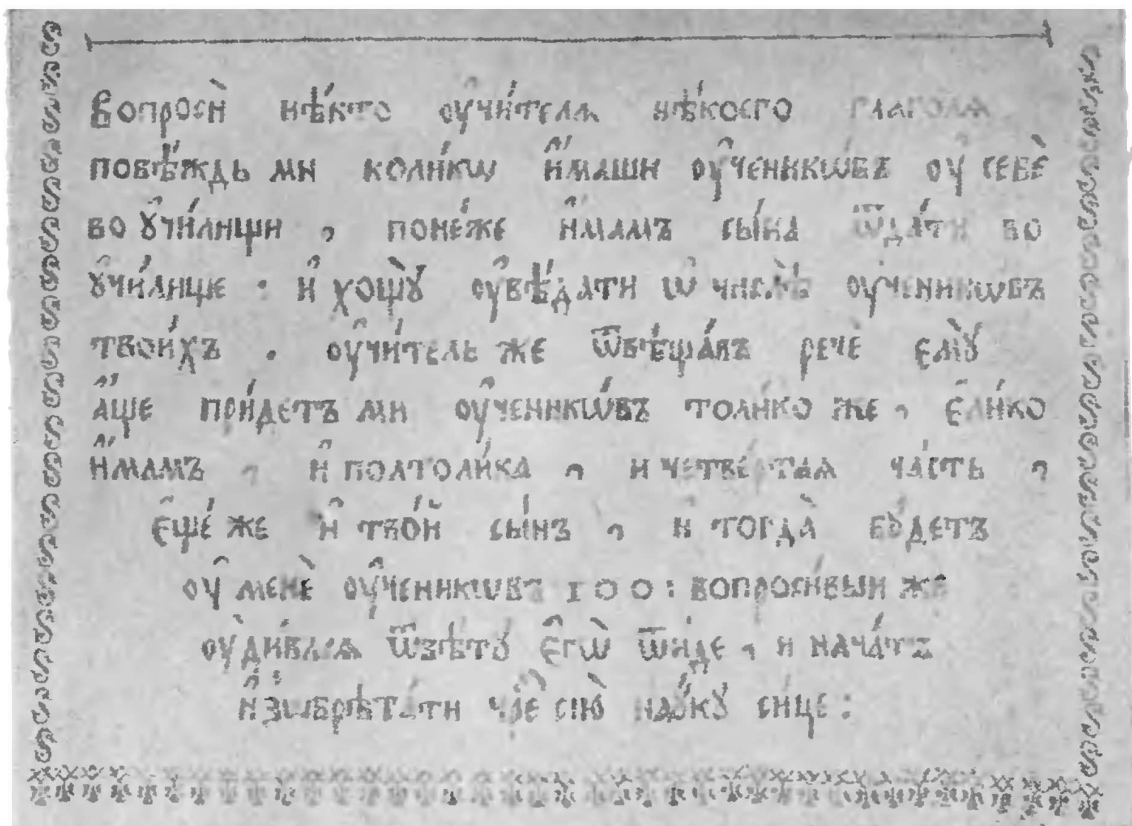 Вопросѝ нѣ́кто оу҆чи́телѧ нѣ́коего глаголѧ
повѣ́ждь ми коли́кѡ и҆́маши оу҆ченикѡ́въ оу҆ себѐ
во ᲂучи́лищи , поне́же и҆́мамъ сы́на ѿда́ти во
ᲂучи́лище : и҆ хощꙋ̀ оу҆вѣ́дати ѡ҆ числѣ̀ оу҆ченикѡвъ
твои́хъ . оу҆чи́тель же ѿвѣща́въ речѐ є҆мꙋ̀
а҆́ще прїи́детъ ми оу҆ченикѡ́въ толи́ко же , є҆ли́ко
и҆́мамъ , и҆ полтоли́ка , и четве́ртаѧ ча́сть ,
є҆ще́ же и҆ тво́й сы́нъ , и҆ тогда̀ бꙋ́детъ
оу҆ менѐ оу҆ченикѡвъ 100 : вопроси́вый же
оу҆диви́всѧ ѿвѣ́тꙋ є҆гѡ̀ ѿи́де , и нача́тъ
и҆зѡбрѣта́ти чре́ сїю̀ наꙋ́кꙋ си́це :